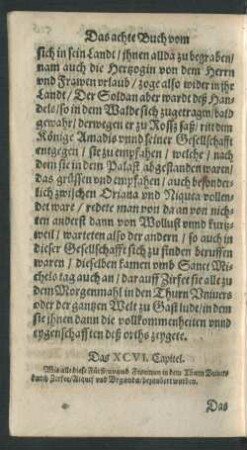 Das achte Buch vom
sich in sein Landt / ihnen allda zu begraben /
nam auch die Hertzogin von dem Herrn
vnd Frawen vrlaub / zoge also wider in jhr
Landt / Der Soldan aber wardt deß Han-
dels / so in dem Walde sich zugetragen / bald
gewahr / derwegen er zu Rossz saß / ritt dem
Könige Amadis vnnd seiner Gesellschafft
entgegen / sie zu empfahen / welche / nach
dem sie in dem Palast abgestanden waren /
das grüssen vnd empfahen / auch besonder-
lich zwischen Oriana vnd Niquea vollen-
det ware / redete man von da an von nich-
ten anderst dann von Wollust vnnd kurtz-
weil / warteten also der andern / so auch in
dieser Gesellschafft sich zu finden beruffen
waren / dieselben kamen vmb Sanct Mi-
chels tag auch an / darauff Zirfee sie alle zu
dem Morgenmahl in den Thurn Vniuers
oder der gantzen Welt zu Gast ludt / in dem
sie jhnen dann die vollkommenheiten vnnd
eygenschafften deß orths zeygete.
Das XCVI. Capitel.
Wie alle diese Fürsten vnnd Frawen in dem Thurn Vniuers
durch Zirfee / Alquif vnd Vrganda / bezaubert wurden.
Das